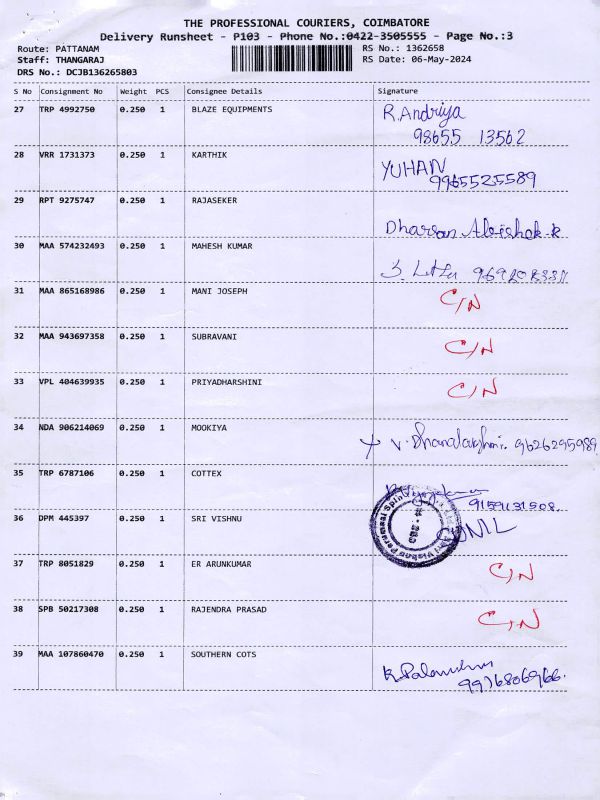 THE PROFESSIONAL COURIERS, COIMBATORE
Delivery Runsheet - P103 - Phone No.:0422-3505555 - Page No.:3
Route: PATTANAM RS No.: 1362658
Staff: THANGARAJ RS Date: 06-May-2024
DRS No.: DCJB136265803
S No Consignment No Weight PCS Consignee Details Signature
27 TRP 4992750 0.250 1 BLAZE EQUIPMENTS R.Andriya
98655 13562
28 VRR 1731373 0.250 1 KARTHIK YUHAN
9965525589
29 RPT 9275747 0.250 1 RAJASEKER
Dharson Abishek.k
30 MAA 574232493 0.250 1 MAHESH KUMAR
31 MAA 865168986 0.250 1 MANI JOSEPH C/N
32 MAA 943697358 0.250 1 SUBRAVANI C/N
33 VPL 404639935 0.250 1 PRIYADHARSHINI C/N
34 NDA 906214069 0.250 1 MOOKIYA V. Dhanalakshmi. 9626295989
35 TRP 6787106 0.250 1 COTTEX
36 DPM 445397 0.250 1 SRI VISHNU
37 TRP 8051829 0.250 1 ER ARUNKUMAR C/N
38 SPB 50217308 0.250 1 RAJENDRA PRASAD C/N
39 MAA 107860470 0.250 1 SOUTHERN COTS
9976806966.